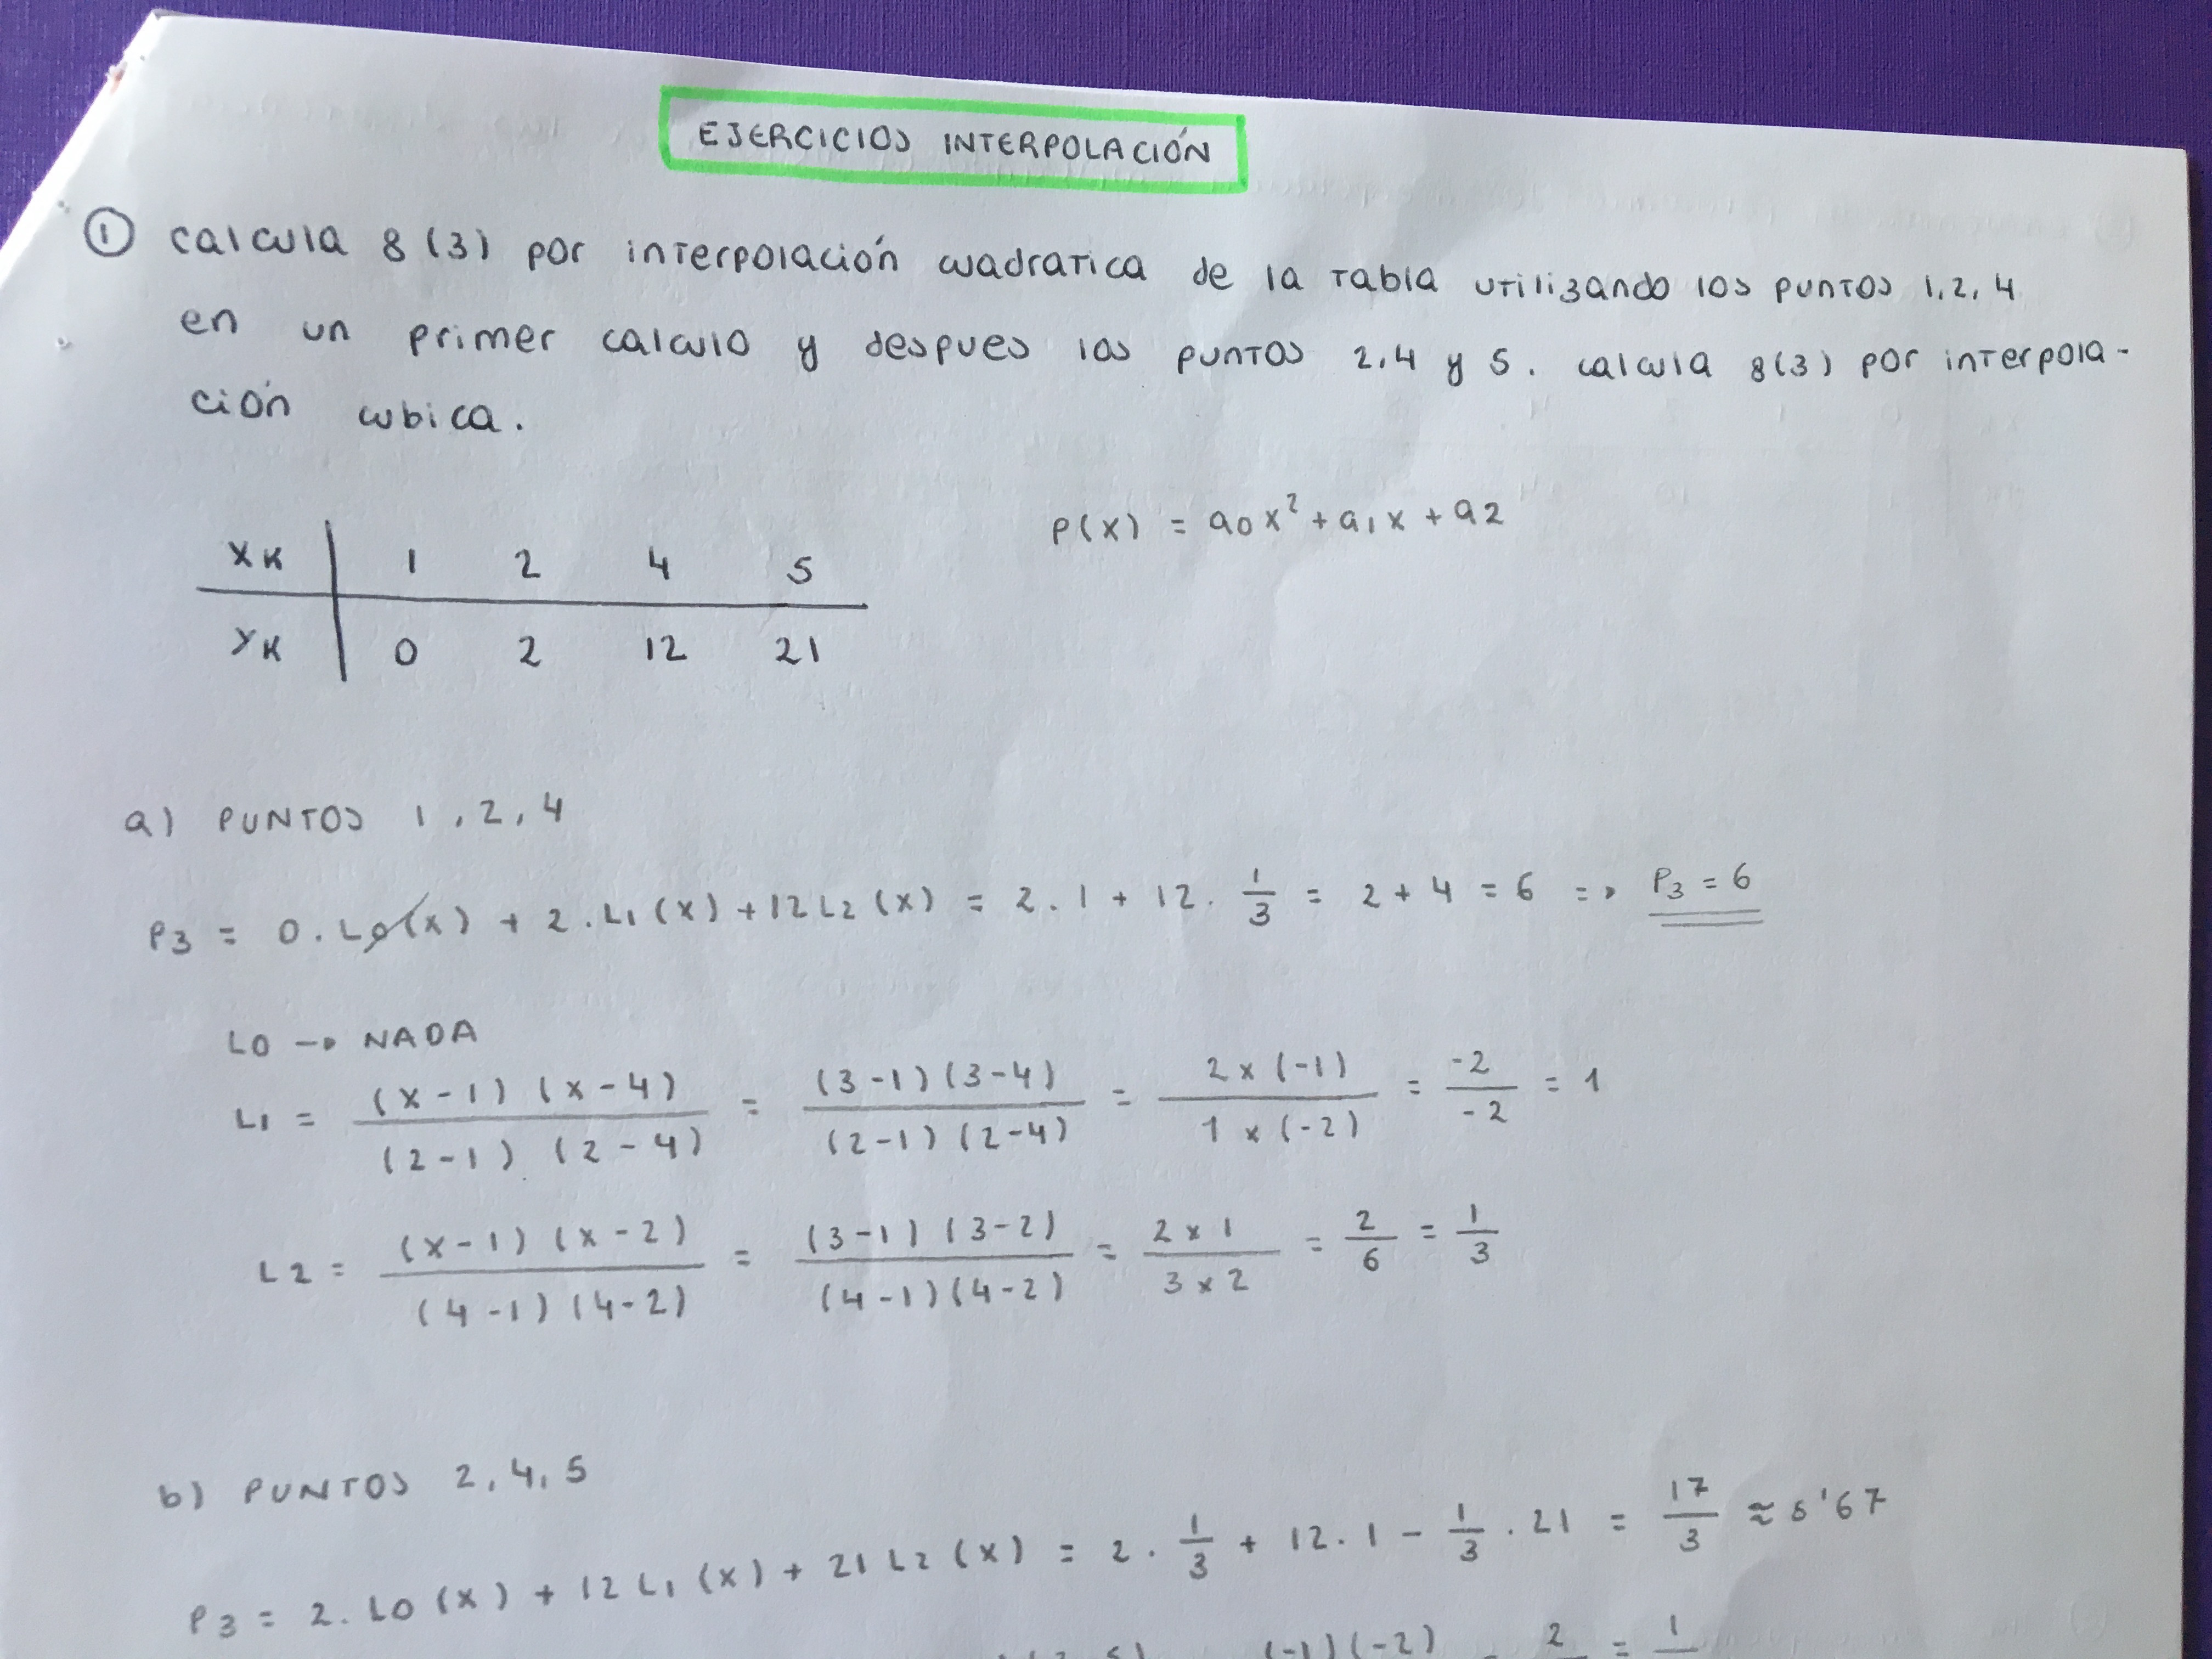 EJERCICIOS INTERPOLACIÓN
① calcula 8(3) por interpolación cuadratica de la tabla utilizando los puntos 1, 2, 4
en un primer calculo y despues los puntos 2, 4 y 5. calcula 8(3) por interpola-
ción cubica.
P(x) = a0x² + a1x + a2
xK | 1 2 4 5
yK | 0 2 12 21
a) PUNTOS 1, 2, 4
P3 = 0 · L0(x) + 2 · L1(x) + 12 L2(x) = 2 · 1 + 12 · 1/3 = 2 + 4 = 6 => P3 = 6
L0 → NADA
L1 = (x-1)(x-4) / (2-1)(2-4) = (3-1)(3-4) / (2-1)(2-4) = 2x(-1) / 1x(-2) = -2/-2 = 1
L2 = (x-1)(x-2) / (4-1)(4-2) = (3-1)(3-2) / (4-1)(4-2) = 2x1 / 3x2 = 2/6 = 1/3
b) PUNTOS 2, 4, 5
P3 = 2 · L0(x) + 12 L1(x) + 21 L2(x) = 2 · 1/3 + 12 · 1 - 1/3 · 21 = 17/3 ≈ 5'67
(-1)(-2) 2 = 1